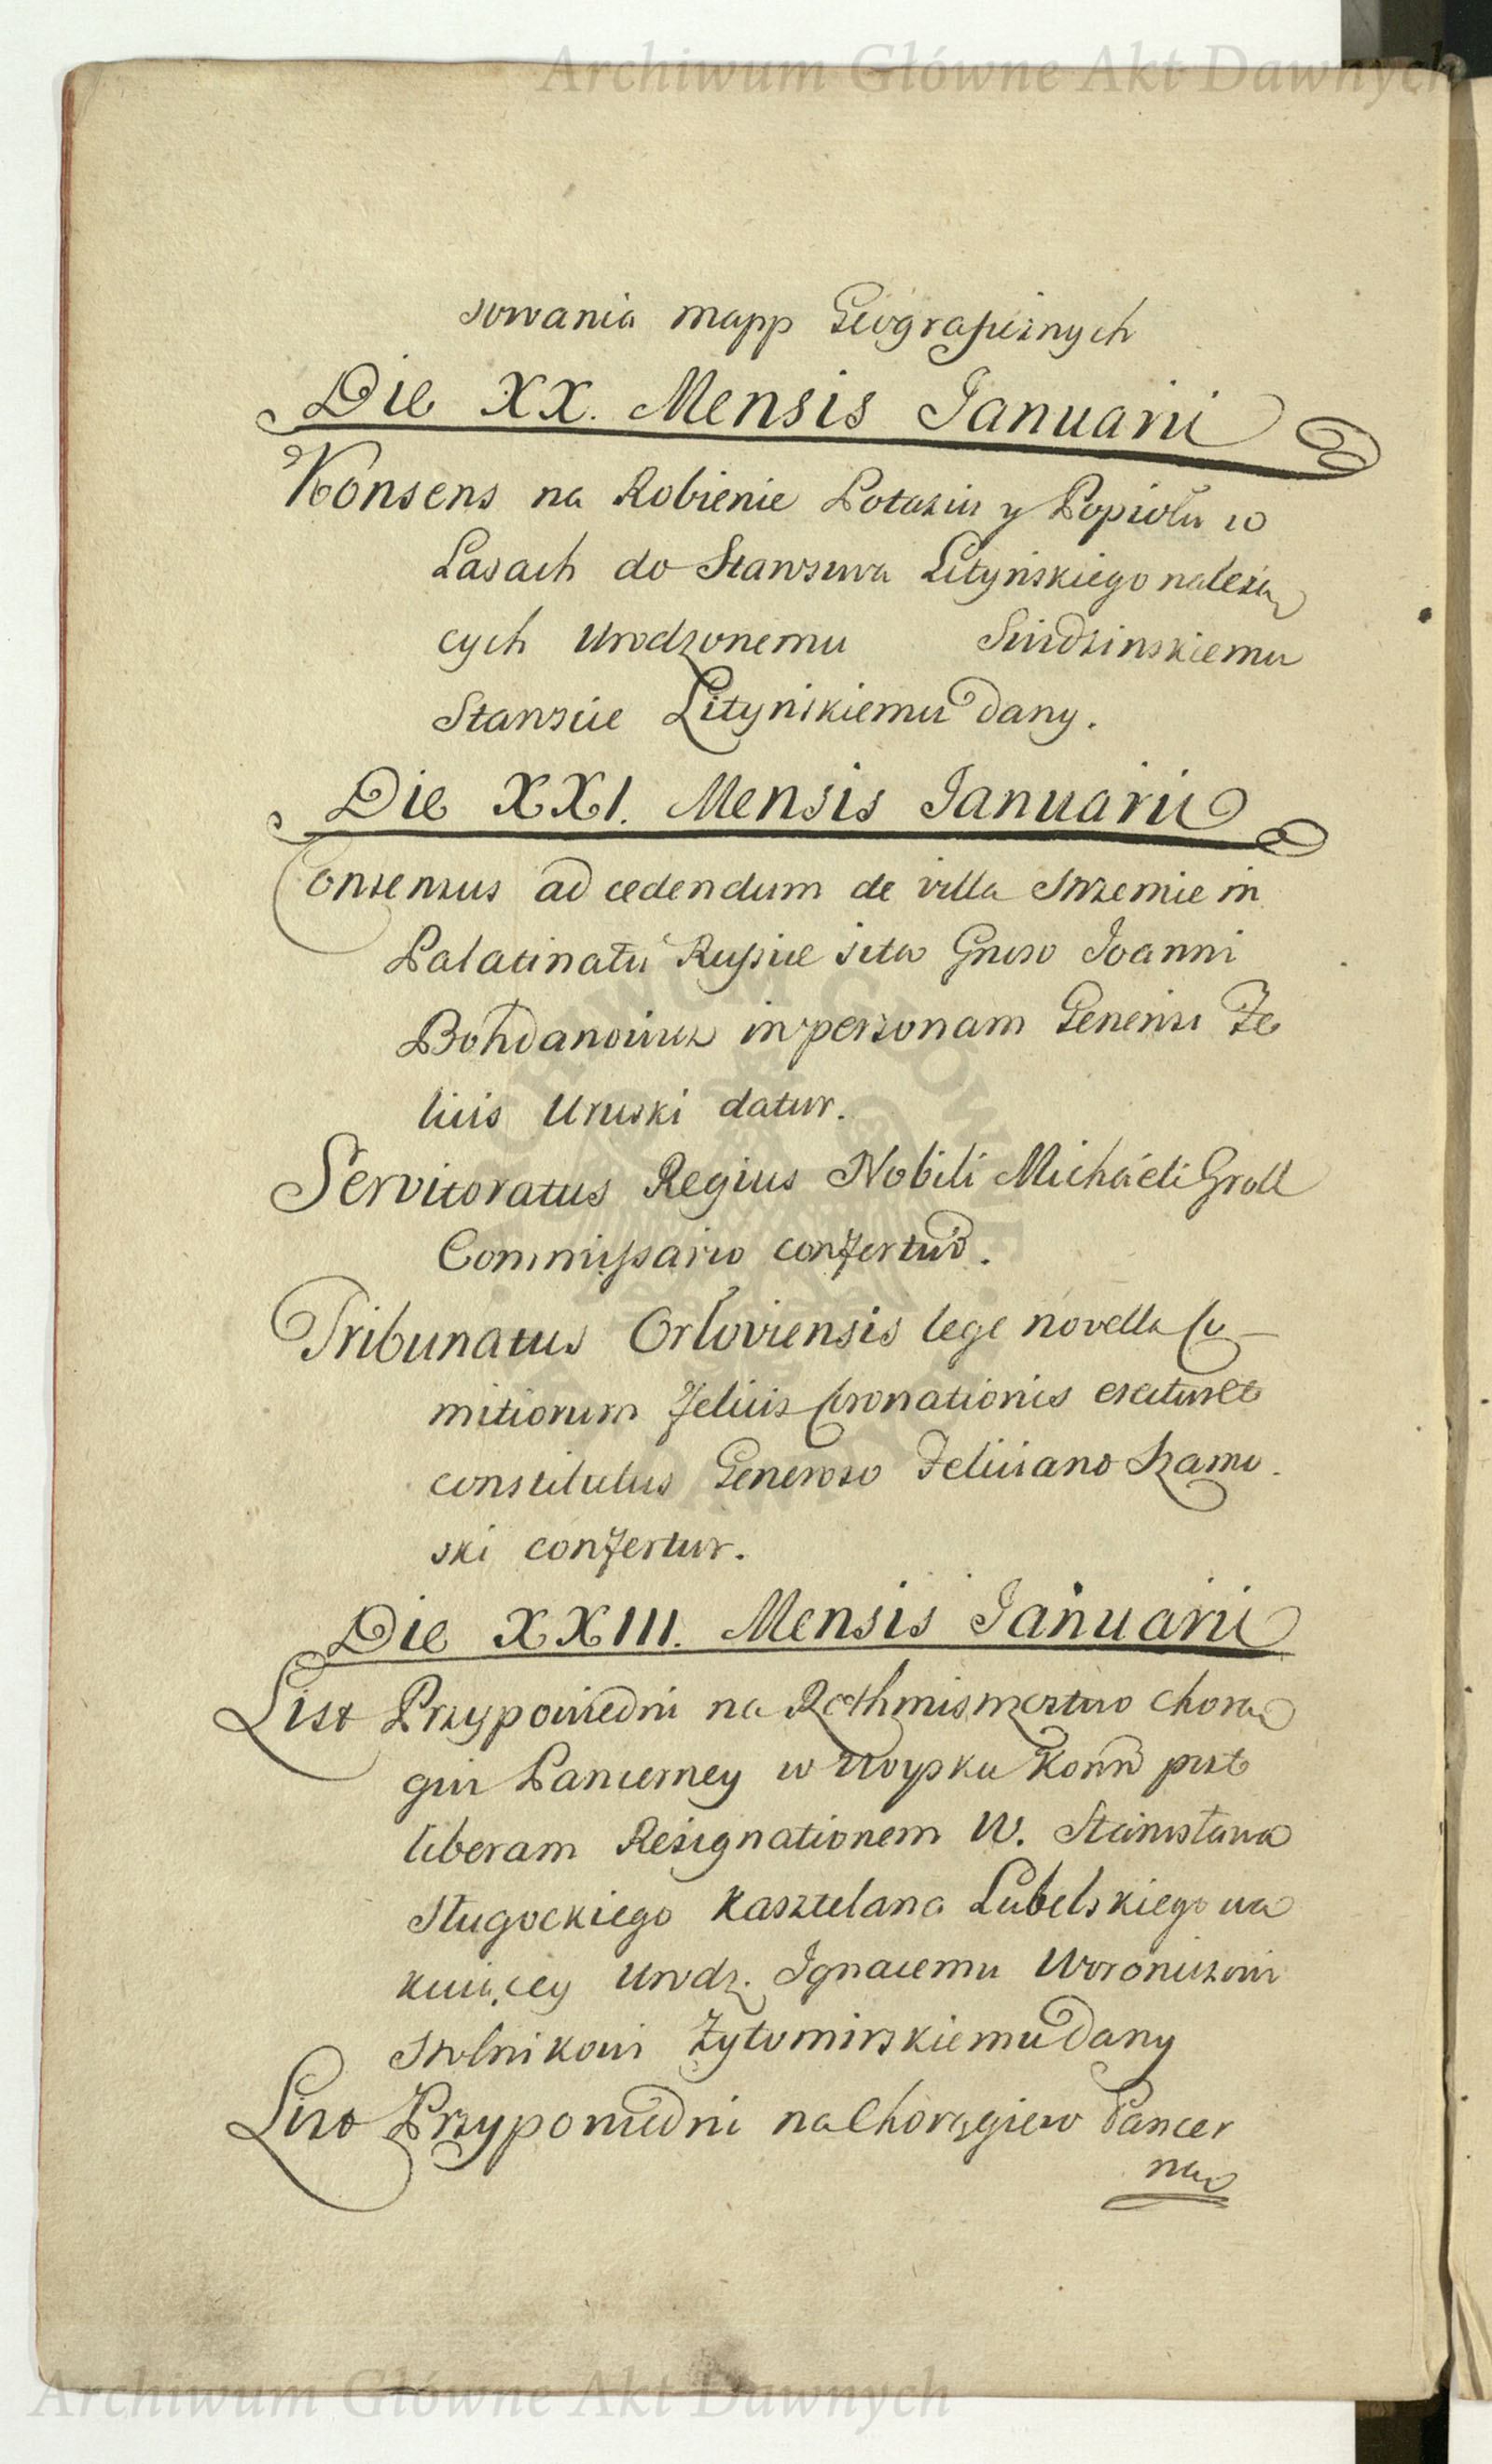 Archiwum Główne Akt Dawnych
sowania mapp Geograficznych
Die XX. Mensis Januarii
Konsens na Robienie Potaziu y Popiołu w
Lasach do Starostwa Lityńskiego należą
cych Urodzonemu
Staroście Lityńskiemu dany.
Die XXI. Mensis Januarii
Consensus ad cedendum de villa in
Palatinatu Russiæ sita Gnroso Joanni
Bohdanowicz in personam Generosi Fe
licis Uruski datur.
Servitoratus Regius Nobili Michaeli Groll
Commissario confertur.
Tribunatus Orłoviensis lege novella Co-
mitiorum felicis Coronationis erectus et
constitutus Generoso Feliciano Szamo
ski confertur.
Die XXIII. Mensis Januarii
List Przypowiedni na Rothmistrzostwo chorą
gwi Pancerney w Woysku Koron post
liberam Resignationem W. Stanisława
Sługockiego Kasztelana Lubelskiego wa
kuiącey Urodz. Ignacemu Woroniczowi
Stolnikowi Zytomirskiemu dany
List Przypowiedni na Chorągiew Pancer
ną
Archiwum Główne Akt Dawnych